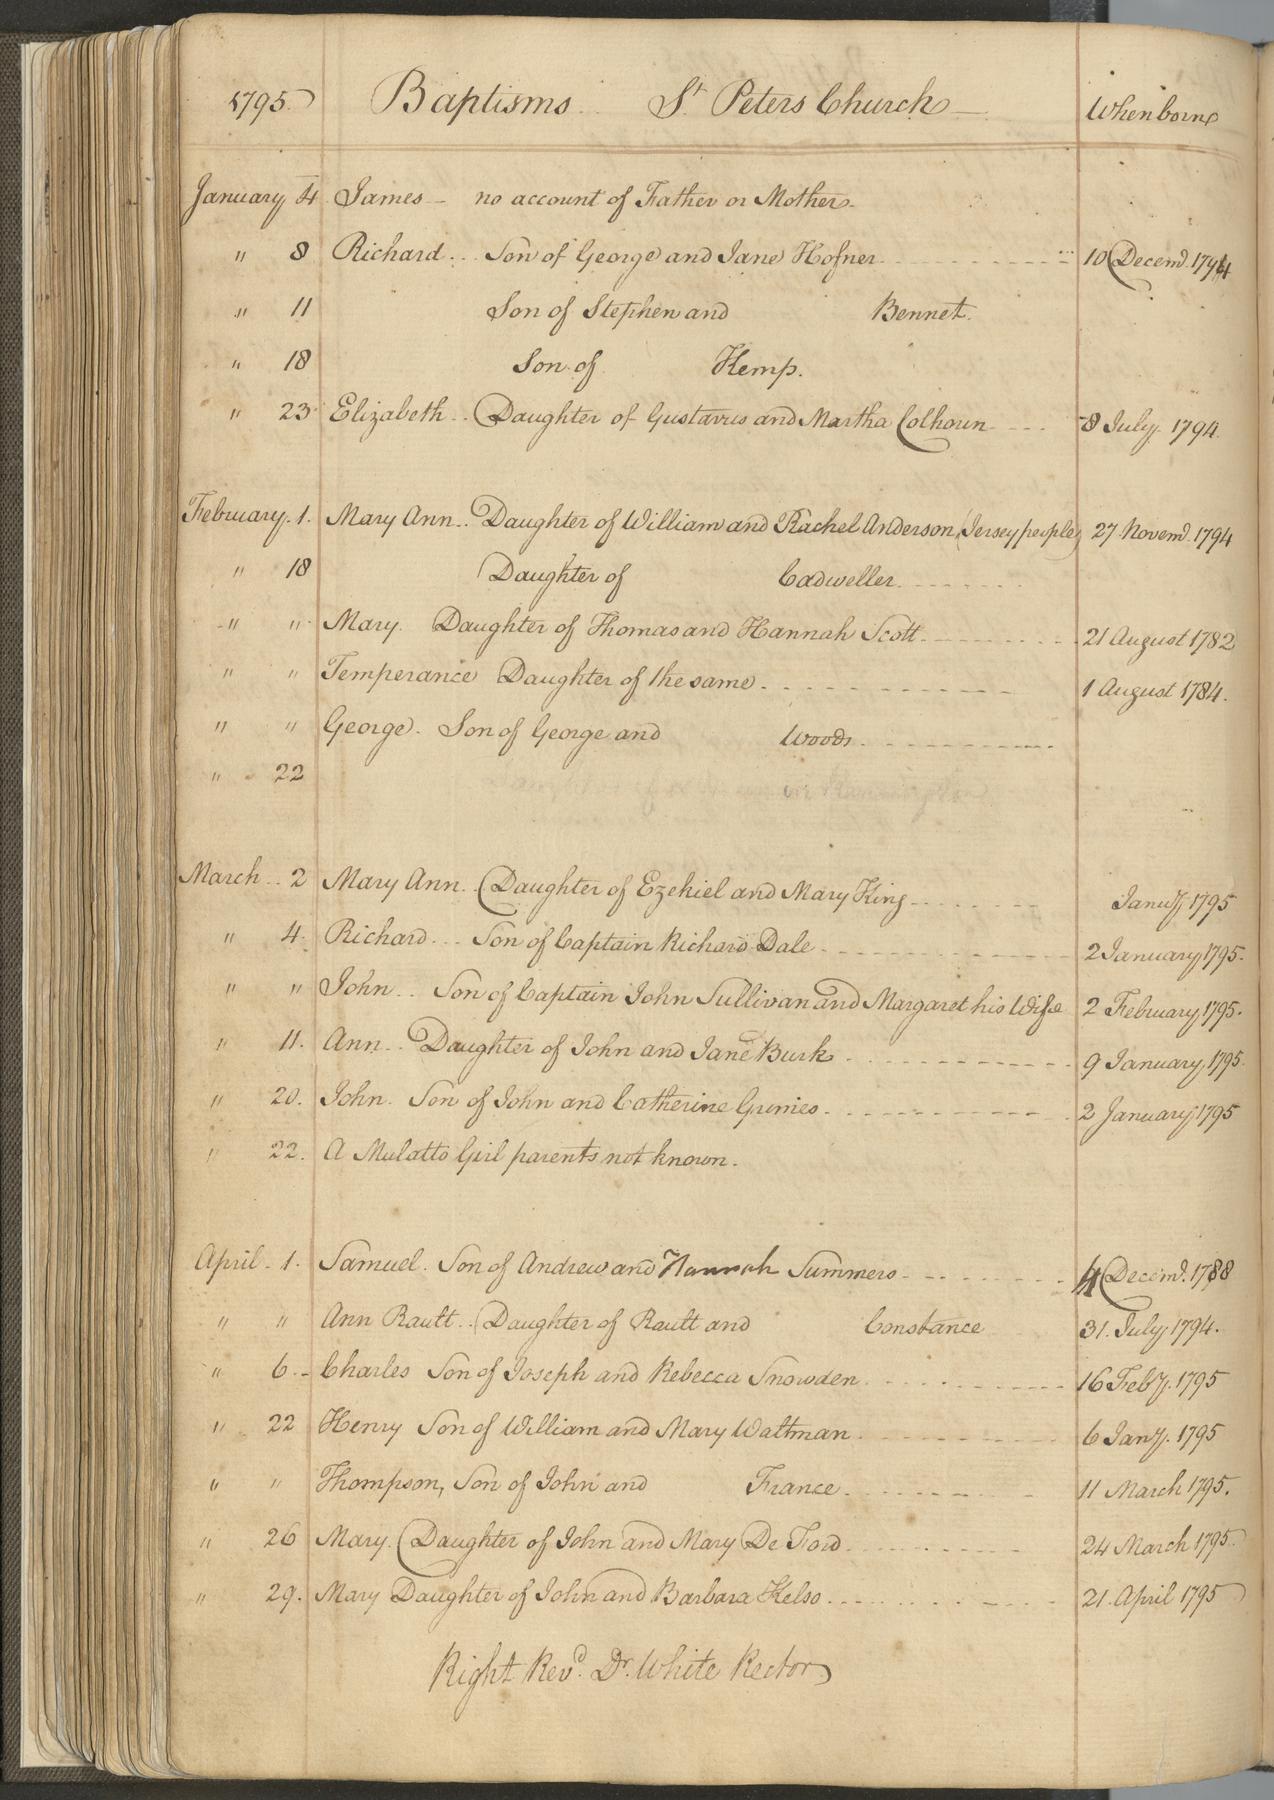 1795. Baptisms St. Peters Church When borne
January 4 James — no account of Father or Mother.
" 8 Richard... Son of George and Jane Hofner 10 Decemr. 1794
" 11 Son of Stephen and Bennet.
" 18 Son of Kemp.
" 23 Elizabeth.. Daughter of Gustavus and Martha Colhoun 8 July. 1794.
February. 1. Mary Ann.. Daughter of William and Rachel Anderson (Jersey people) 27 Novemr. 1794
" 18 Daughter of Cadweller.
" " Mary. Daughter of Thomas and Hannah Scott. 21 August 1782
" " Temperance Daughter of the same. 1 August 1784.
" " George. Son of George and Woods.
" 22 Daughter of
March.. 2 Mary Ann.. Daughter of Ezekiel and Mary King Janu'y. 1795
" 4. Richard... Son of Captain Richard Dale 2 January 1795.
" " John.. Son of Captain John Sullivan and Margaret his Wife 2 February 1795.
" 11. Ann.. Daughter of John and Jane Burk 9 January, 1795.
" 20. John. Son of John and Catherine Grimes. 2 January 1795
" 22. A Mulatto Girl parents not known.
April. 1. Samuel. Son of Andrew and Hannah Summers 4 Decemr. 1788
" " Ann Rautt.. Daughter of Rautt and Constance 31. July 1794.
" 6.. Charles Son of Joseph and Rebecca Snowden 16 Feb'y. 1795
" 22 Henry Son of William and Mary Waltman 6 Jan'y. 1795
" " Thompson, Son of John and France. 11 March 1795.
" 26 Mary. Daughter of John and Mary De Ford 24 March 1795.
" 29. Mary Daughter of John and Barbara Kelso. 21. April 1795
Right Revd. Dr. White Rector